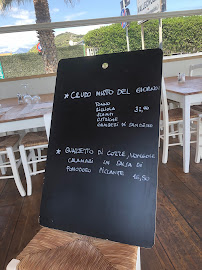 * CRUDO MISTO DEL GIORNO
TONNO
RICCIOLA 32,00
SCAMPI
OSTRICHE
GAMBERI DI SANREMO
* GUAZZETTO DI COZZE, VONGOLE
CALAMARI IN SALSA DI
POMODORO PICCANTE 16,50